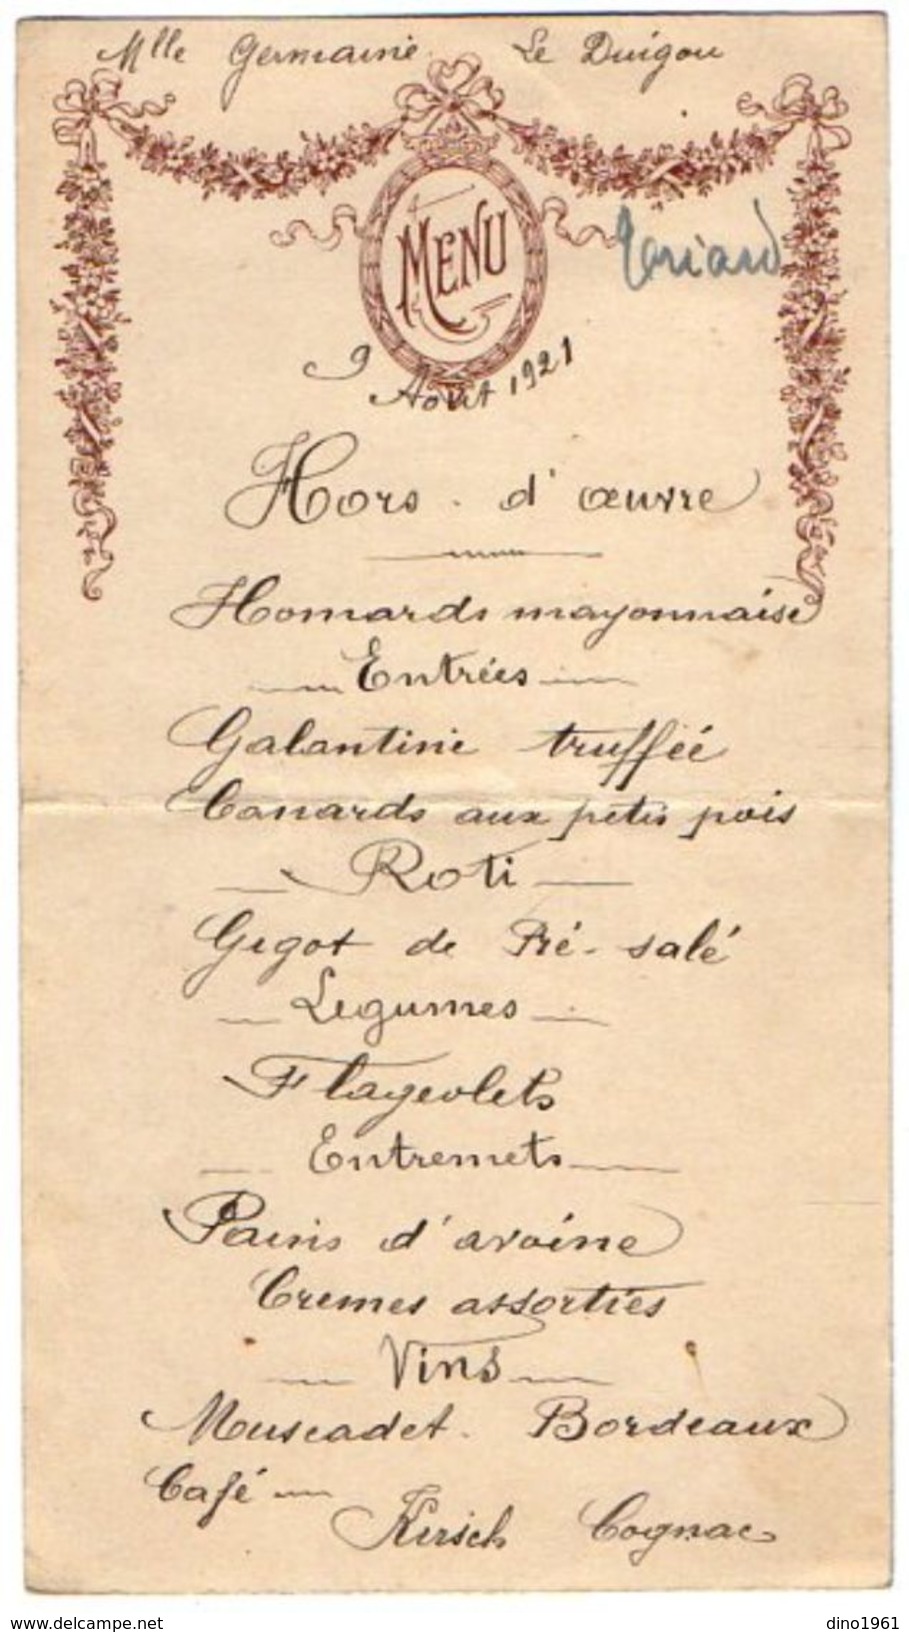 Mlle Germaine Le Duigou
MENU
9 Août 1921
Hors-d'œuvre
Homards mayonnaise
Entrées
Galantine truffée
Canards aux petis pois
Roti
Gigot de Pré-salé
Légumes
Flageolets
Entremets
Pains d'avoine
Cremes assorties
Vins
Muscadet. Bordeaux
Café - Kirsch Cognac
delcampe.net
dino1961